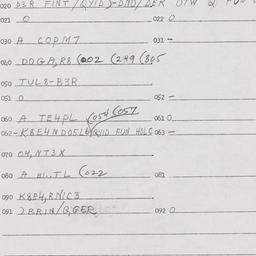 020 D3R FINT/QVID)-DND/DER OTW Q
021 0 022 0
030 A COPM7 031 -
040 DDGA,R8 (002 (249 (305
050 TUL8-B3R
051 0 052 -
060 A TE4PL (054 (057 061 0
062 - K8E4ND05L6/QVID FUN HOLG 063 -
070 04,NT3X
080 A HI..TL (022 081
090 K8E4,RNIC3
091 2BRIN/Q,GER 092 0